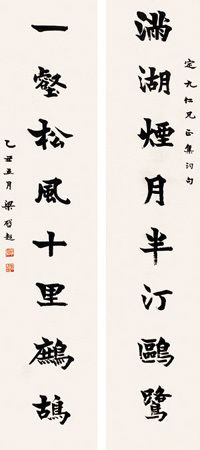 定九仁兄正集詞句
滿湖煙月半汀鷗鷺
一壑松風十里鷓鴣
乙丑五月梁啟超